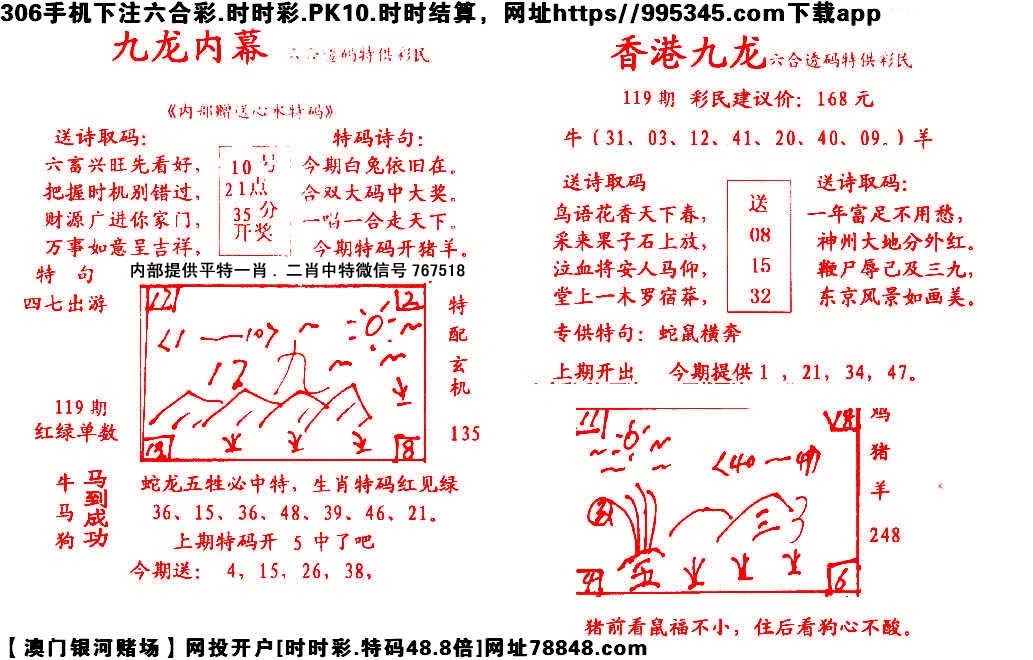 306手机下注六合彩.时时彩.PK10.时时结算，网址https//995345.com下载app
九龙内幕 六合透码特供彩民
《内部赠送心水特码》
送诗取码：
六畜兴旺先看好，
把握时机别错过，
财源广进你家门，
万事如意呈吉祥，
10号
21点
35分
开奖
特码诗句：
今期白兔依旧在。
合双大码中大奖。
一唱一合走天下。
今期特码开猪羊。
内部提供平特一肖．二肖中特微信号 767518
特 句
四七出游
119期
红绿单数
12
2
<1—10>
12
九
13
8
特
配
玄
机
135
牛
马
狗
马到成功
蛇龙五牲必中特，生肖特码红见绿
36、15、36、48、39、46、21。
上期特码开 5 中了吧
今期送： 4，15，26，38，
香港九龙 六合透码特供彩民
119期 彩民建议价：168元
牛（31、03、12、41、20、40、09。）羊
送诗取码
鸟语花香天下春，
采来果子石上放，
泣血将安人马仰，
堂上一木罗宿莽，
送
08
15
32
送诗取码：
一年富足不用愁，
神州大地分外红。
鞭尸辱己及三九，
东京风景如画美。
专供特句：蛇鼠横奔
上期开出 今期提供1，21，34，47。
11
18
<40—49>
三
4
6
鸡
猪
羊
248
猪前看鼠福不小，住后看狗心不酸。
【澳门银河赌场】网投开户[时时彩.特码48.8倍]网址78848.com